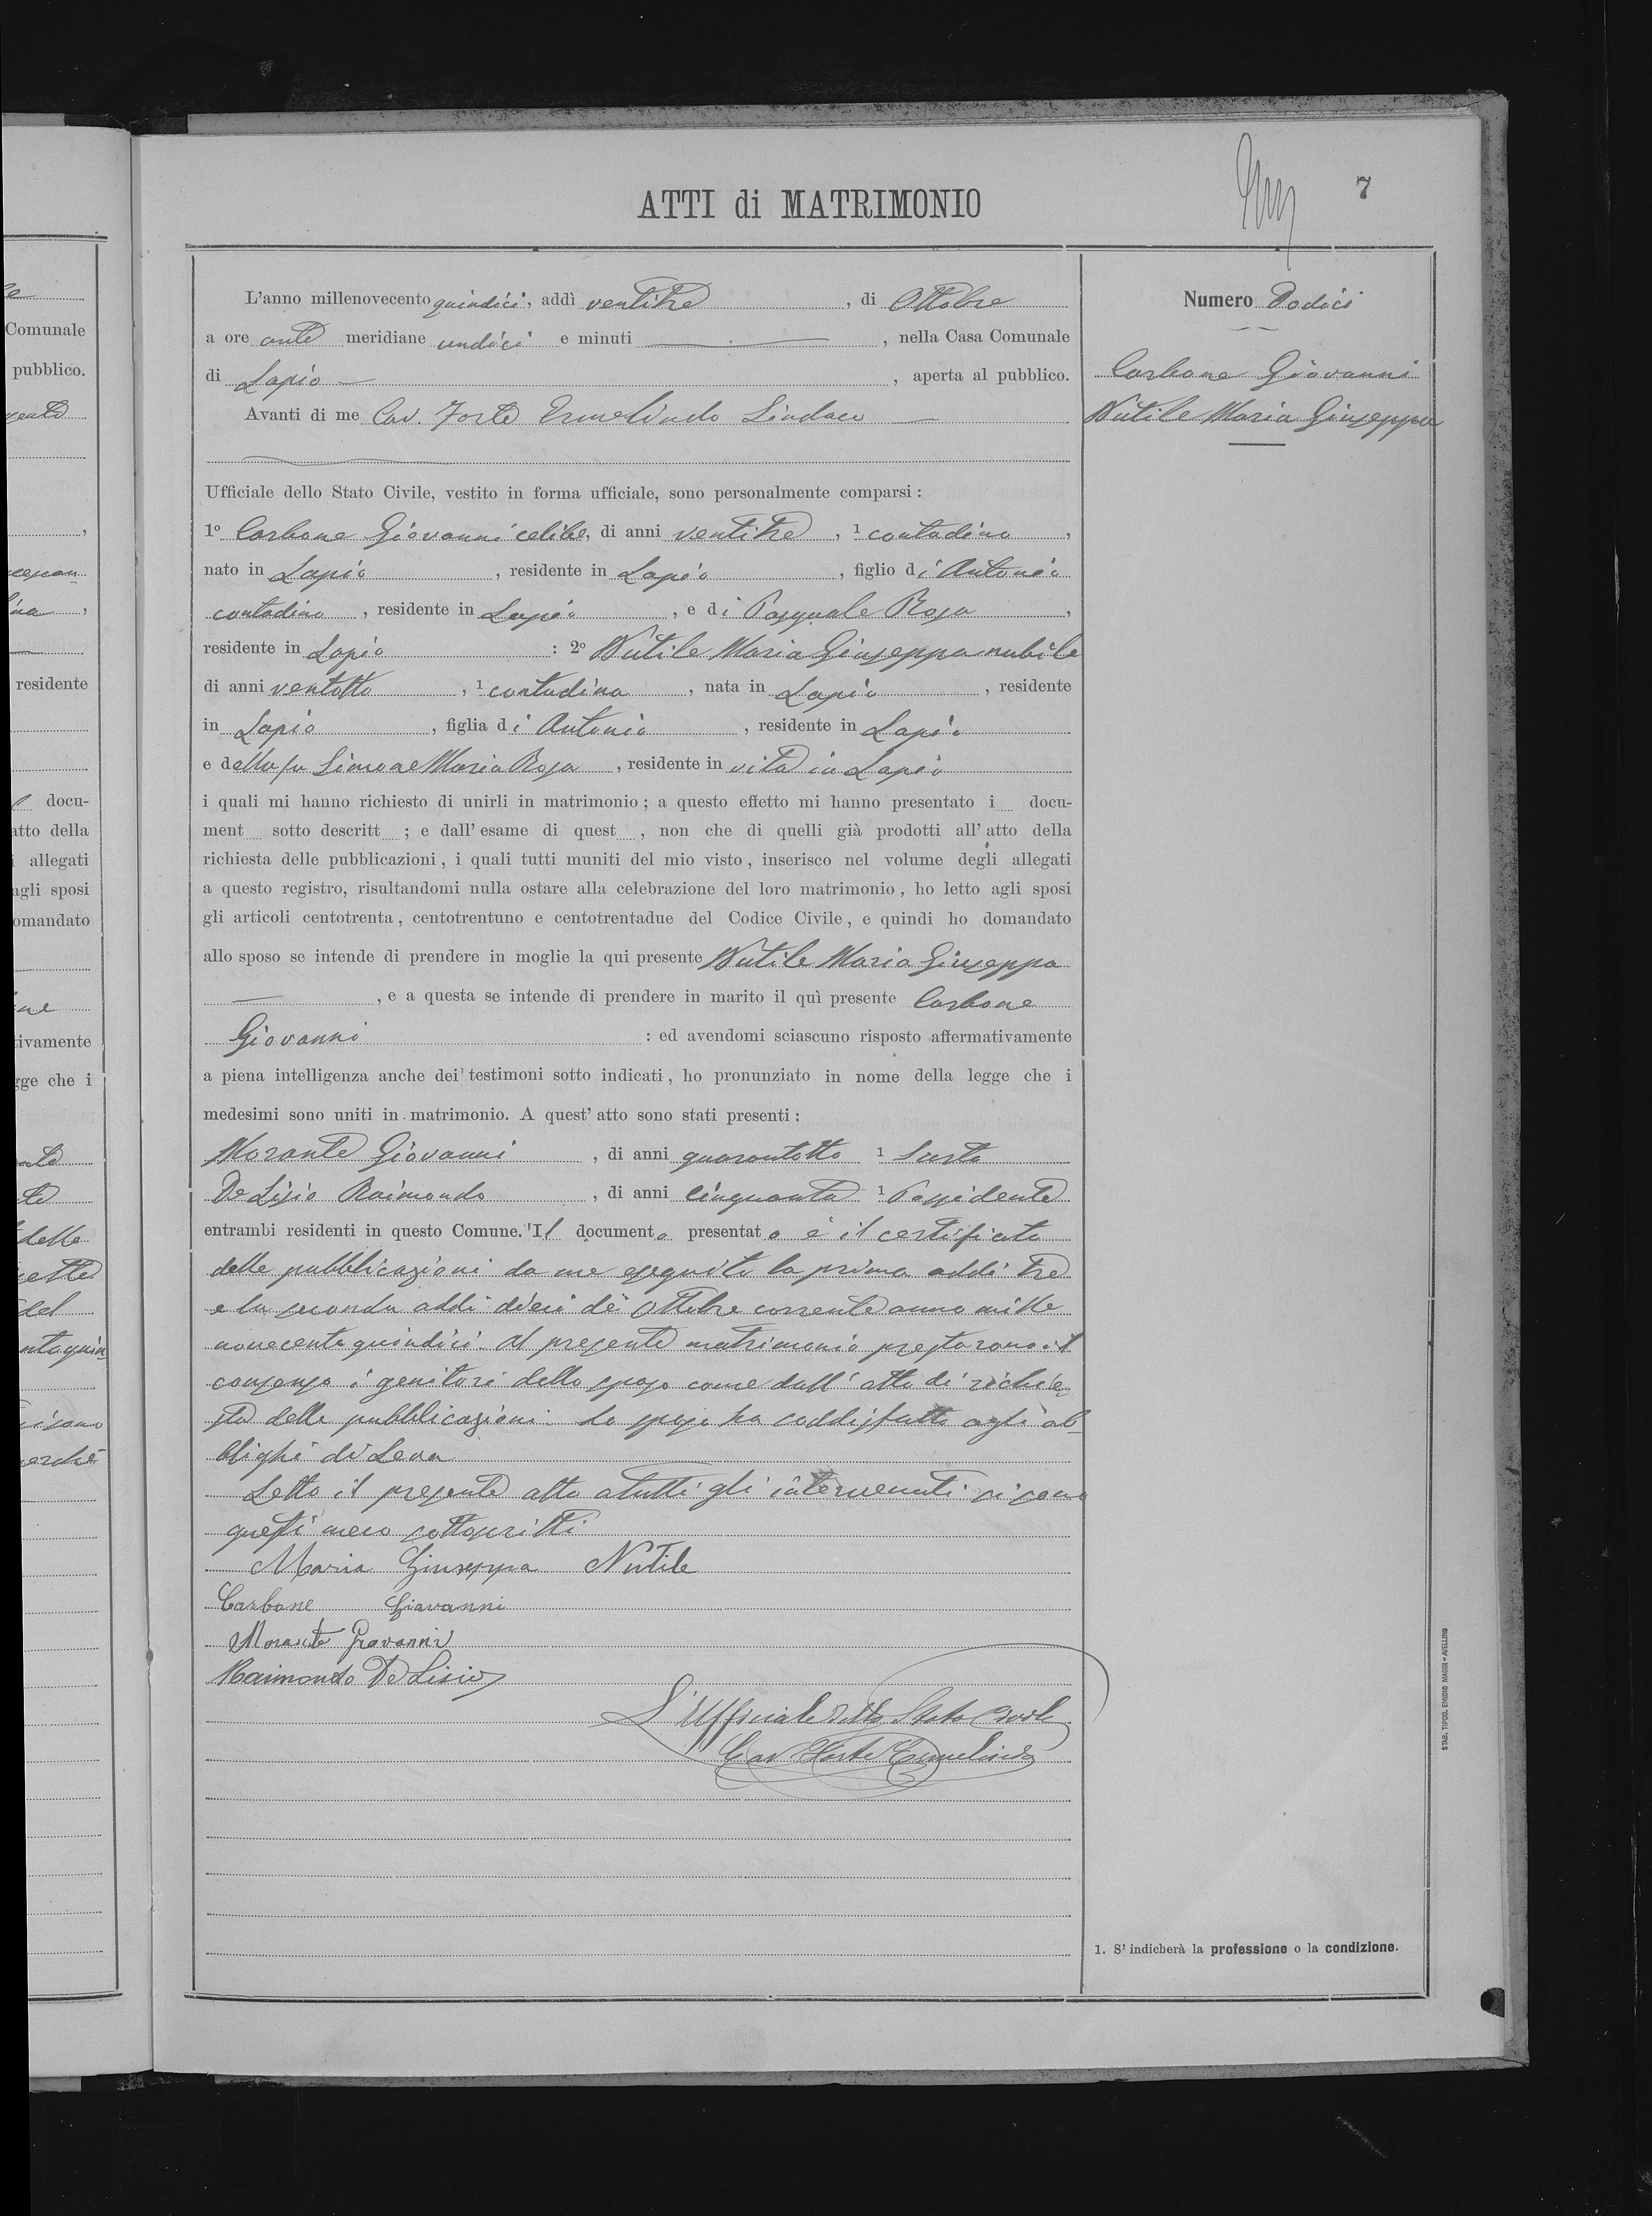 ATTI di MATRIMONIO
7
L'anno millenovecento quindici, addì ventitre, di Ottobre
a ore ante meridiane undici e minuti ———, nella Casa Comunale
di Lapio —, aperta al pubblico.
Avanti di me Cav. Forte Ermelindo Sindaco —
Ufficiale dello Stato Civile, vestito in forma ufficiale, sono personalmente comparsi:
1º Carbone Giovanni celibe, di anni ventitre, 1 contadino,
nato in Lapio, residente in Lapio, figlio di Antonio
contadino, residente in Lapio, e di Pasquale Rosa,
residente in Lapio: 2º Nutile Maria Giuseppa nubile
di anni ventotto, 1 contadina, nata in Lapio, residente
in Lapio, figlia di Antonio, residente in Lapio
e della fu Simone Maria Rosa, residente in vita in Lapio
i quali mi hanno richiesto di unirli in matrimonio; a questo effetto mi hanno presentato i docu-
ment sotto descritt ; e dall'esame di quest , non che di quelli già prodotti all'atto della
richiesta delle pubblicazioni, i quali tutti muniti del mio visto, inserisco nel volume degli allegati
a questo registro, risultandomi nulla ostare alla celebrazione del loro matrimonio, ho letto agli sposi
gli articoli centotrenta, centotrentuno e centotrentadue del Codice Civile, e quindi ho domandato
allo sposo se intende di prendere in moglie la qui presente Nutile Maria Giuseppa
—, e a questa se intende di prendere in marito il quì presente Carbone
Giovanni : ed avendomi sciascuno risposto affermativamente
a piena intelligenza anche dei testimoni sotto indicati, ho pronunziato in nome della legge che i
medesimi sono uniti in matrimonio. A quest'atto sono stati presenti:
Morante Giovanni, di anni quarantotto 1 Sarto
De Lisio Raimondo, di anni cinquanta 1 Possidente
entrambi residenti in questo Comune. Il documento presentato è il certificato
delle pubblicazioni da me eseguite la prima addì tre
e la seconda addì dieci dè Ottobre corrente anno mille
novecentoquindici. Al presente matrimonio prestarono il
consenso i genitori dello sposo come dall'atto di richie-
sta delle pubblicazioni. Lo sposo ha soddisfatto agli ob-
blighi di Leva
Letto il presente atto a tutti gli intervenuti si sono
questi meco sottoscritti
Maria Giuseppa Nutile
Carbone Giovanni
Morante Giovanni
Raimondo De Lisio
L'Ufficiale dello Stato Civile
Cav Forte Ermelindo
Numero Dodici
Carbone Giovanni
Nutile Maria Giuseppa
1. S'indicherà la professione o la condizione.
STAB. TIPOG. EMIDIO MAGGI - AVELLINO
Comunale
pubblico.
residente
docu-
atto della
allegati
agli sposi
omandato
tivamente
gge che i